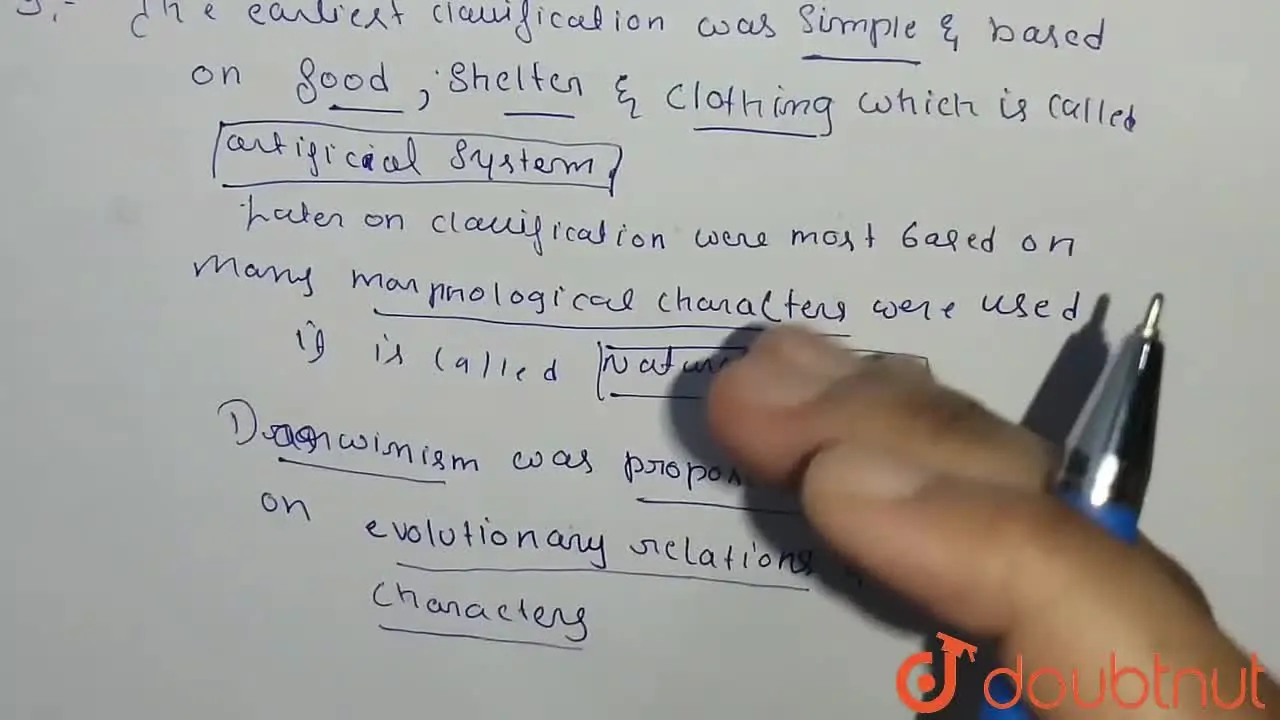 The earliest classification was simple & based
on food, shelter & clothing which is called
artificial system
Later on classification were most based on
many morphological characters were used
is called
Darwinism was
on evolutionary relations
characters
doubtnut